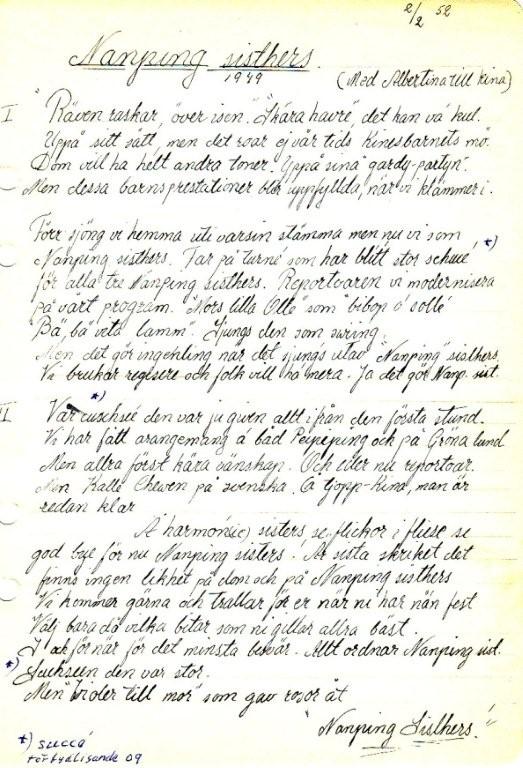 2/2 52
Nanping sisthers
1949
(Med Albertina till Kina)
I "Räven raskar, över isen". "Skära havre", det kan va kul.
Uppå sitt sätt, men det roar ej vår tids Kinesbarnets mö.
Dom vill ha helt andra toner. Uppå sina "gardy-partyn".
Men dessa barnsprestationer blir uppfyllda, när vi klämmer i.
Förr sjöng vi hemma uti varsin stämma men nu vi som
Nanping sisthers. Far på turné som har blitt stor schuié, *)
för alla tre Nanping sisthers. Reportoaren vi modernisera
på vårt program. "Mors lilla Olle" som "bibop o' sollé
"Bä, bä vita lamm". Sjungs den som swing.
Men det gör ingenting när det sjungs utav "Nanping" sisthers,
Vi brukar regisere och folk vill ha mera. Ja det gör Nanp. sist.
*)
II Vår cuschsié den var ju given allt ifrån den första stund.
Vi har fått arangemang å båd Peipeping och på Gröna lund
Men allra först kära vänskap. Och eder nu reportoar.
Men Kalle Chewen på svenska. Å tjopp-Kina, man är
redan klar
A' harmon(ie) sisters se flickor i fliese se
god bye för nu Nanping sisters! Är sista skriket det
finns ingen likhet på dom och på Nanping sisthers
Vi kommer gärna och trallar för er när ni har nån fest
Välj bara då vilka bitar som ni gillar allra bäst.
för det minsta besvär. Allt ordnar Nanping sist.
*) Suchséen den var stor.
Men "Violer till mor" som gav rosor åt
"Nanping Sisthers!"
*) succé
förtydligande 09